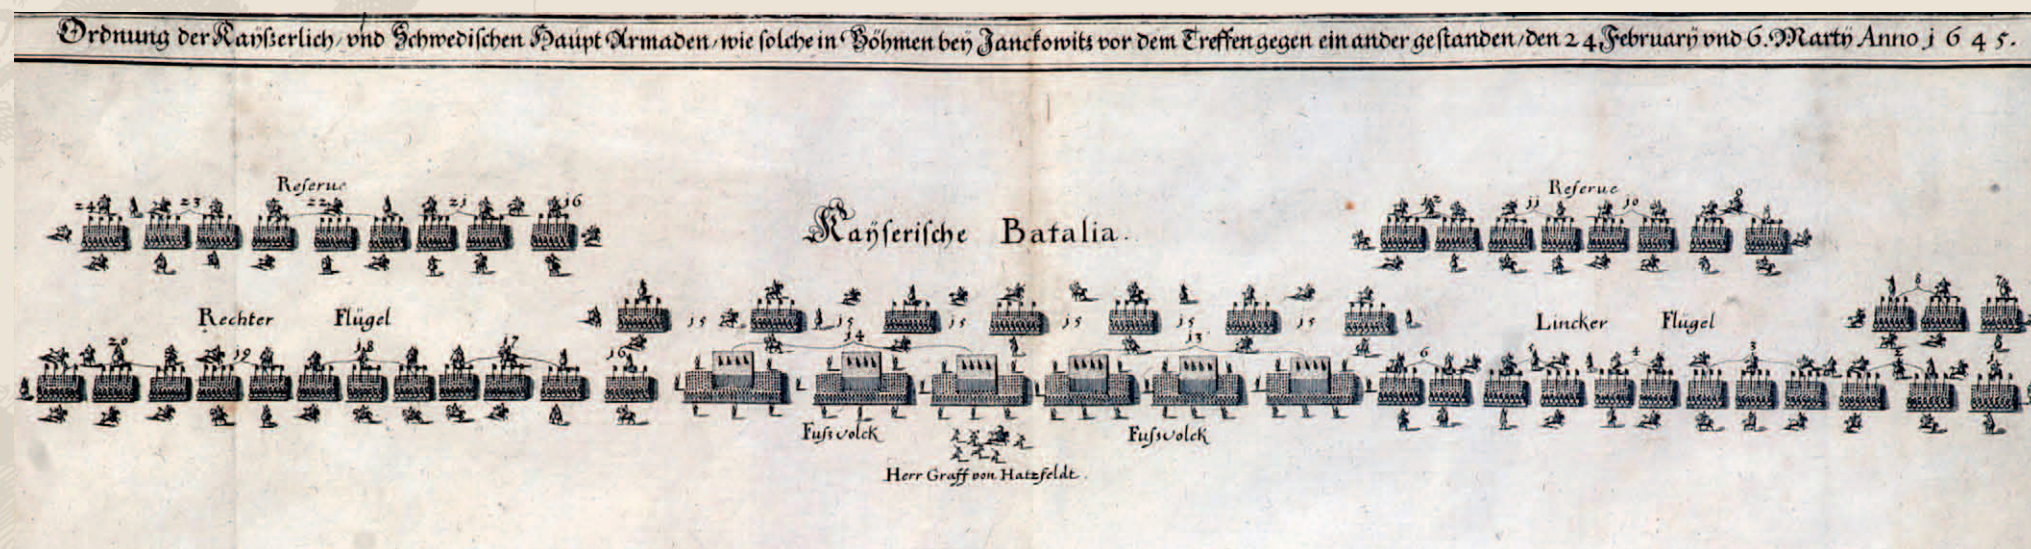 Ordnung der Kaÿßerlich, vnd Schwedischen Haupt Armaden, wie solche in Böhmen beÿ Janckowits vor dem Treffen gegen ein ander gestanden, den 24 Februarÿ vnd 6. Martÿ Anno j 6 4 5.
Reserue
24 23 22 2j j6
Kaÿserische Batalia.
Reserue
j2 jj jo 9
8 7
Rechter Flügel
j5 j5 j5 j5 j5 j5
Lincker Flügel
20 j9 j8 j7 j6
j4 j3
6 5 4 3 2 j
Fussvolck Fussvolck
Herr Graff von Hatzfeldt.